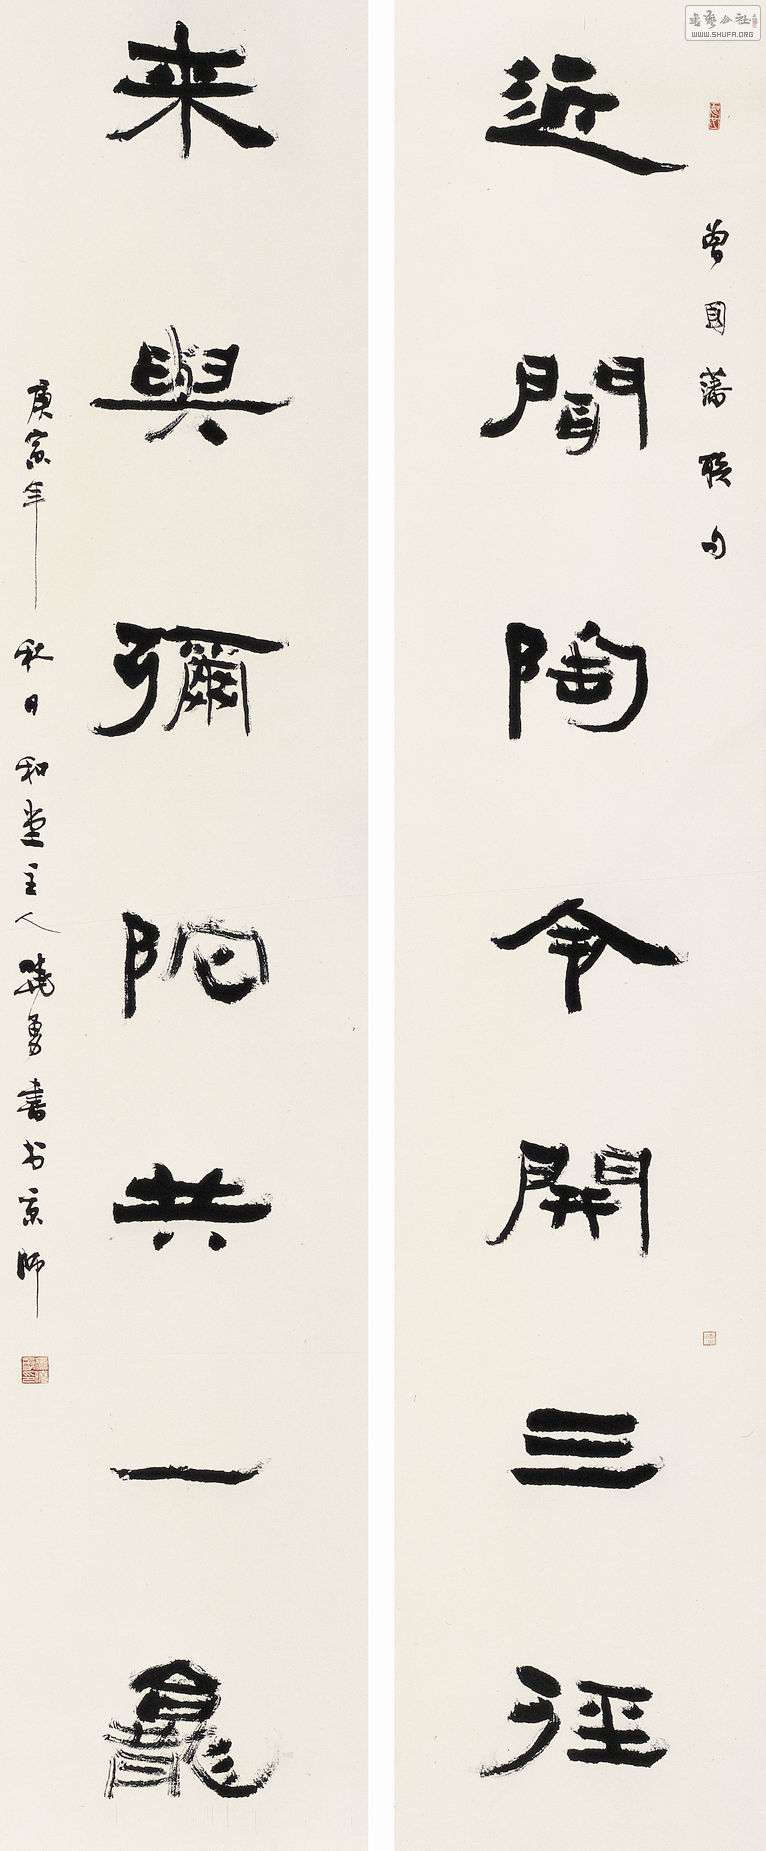 近聞陶令開三徑
来與彌陀共一龕
曾國藩聯句
庚寅年秋日和堂主人曉勇書於京師
書藝公社
WWW.SHUFA.ORG